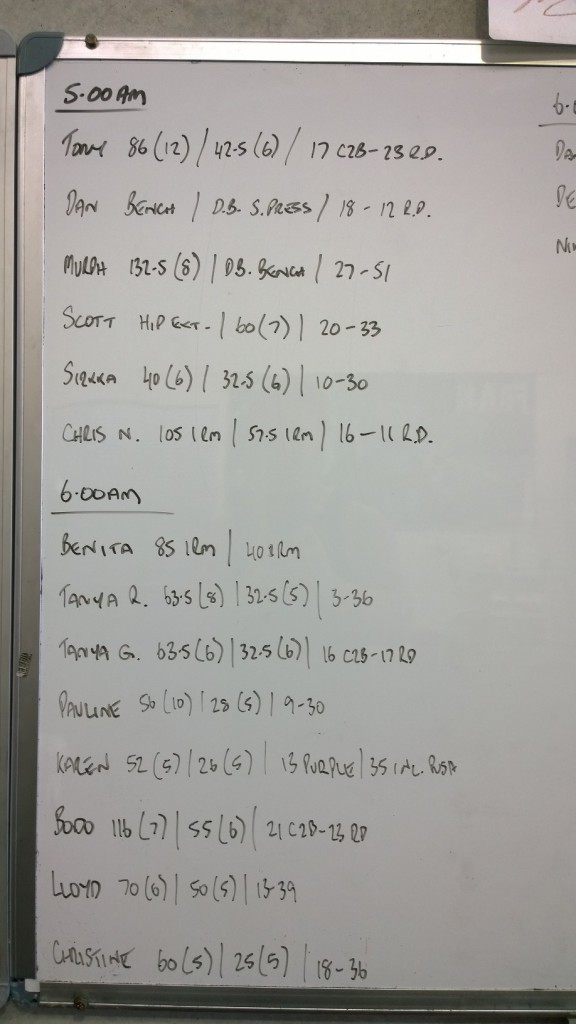 5.00AM
TONY 86 (12) / 42.5 (6) / 17 C2B - 23 R.D.
DAN BENCH / D.B. S.PRESS / 18 - 12 R.D.
MURPH 132.5 (8) | D.B. BENCH | 27 - 51
SCOTT HIP EXT. | 60 (7) | 20 - 33
40 (6) | 32.5 (6) | 10 - 30
CHRIS N. 105 1RM | 57.5 1RM | 16 - 11 R.D.
6.00AM
BENITA 85 1RM | 40 1RM
TANYA R. 63.5 (8) | 32.5 (5) | 3 - 36
TANYA G. 63.5 (6) | 32.5 (6) | 16 C2B - 17 RD
PAULINE 56 (10) | 28 (5) | 9 - 30
KAREN 52 (5) | 26 (5) | 13 PURPLE | 35 INC.
BODO 116 (7) | 55 (6) | 21 C2B - 23 RD
LLOYD 70 (6) | 50 (5) | 13 - 39
CHRISTINE 60 (5) | 25 (5) | 18 - 36